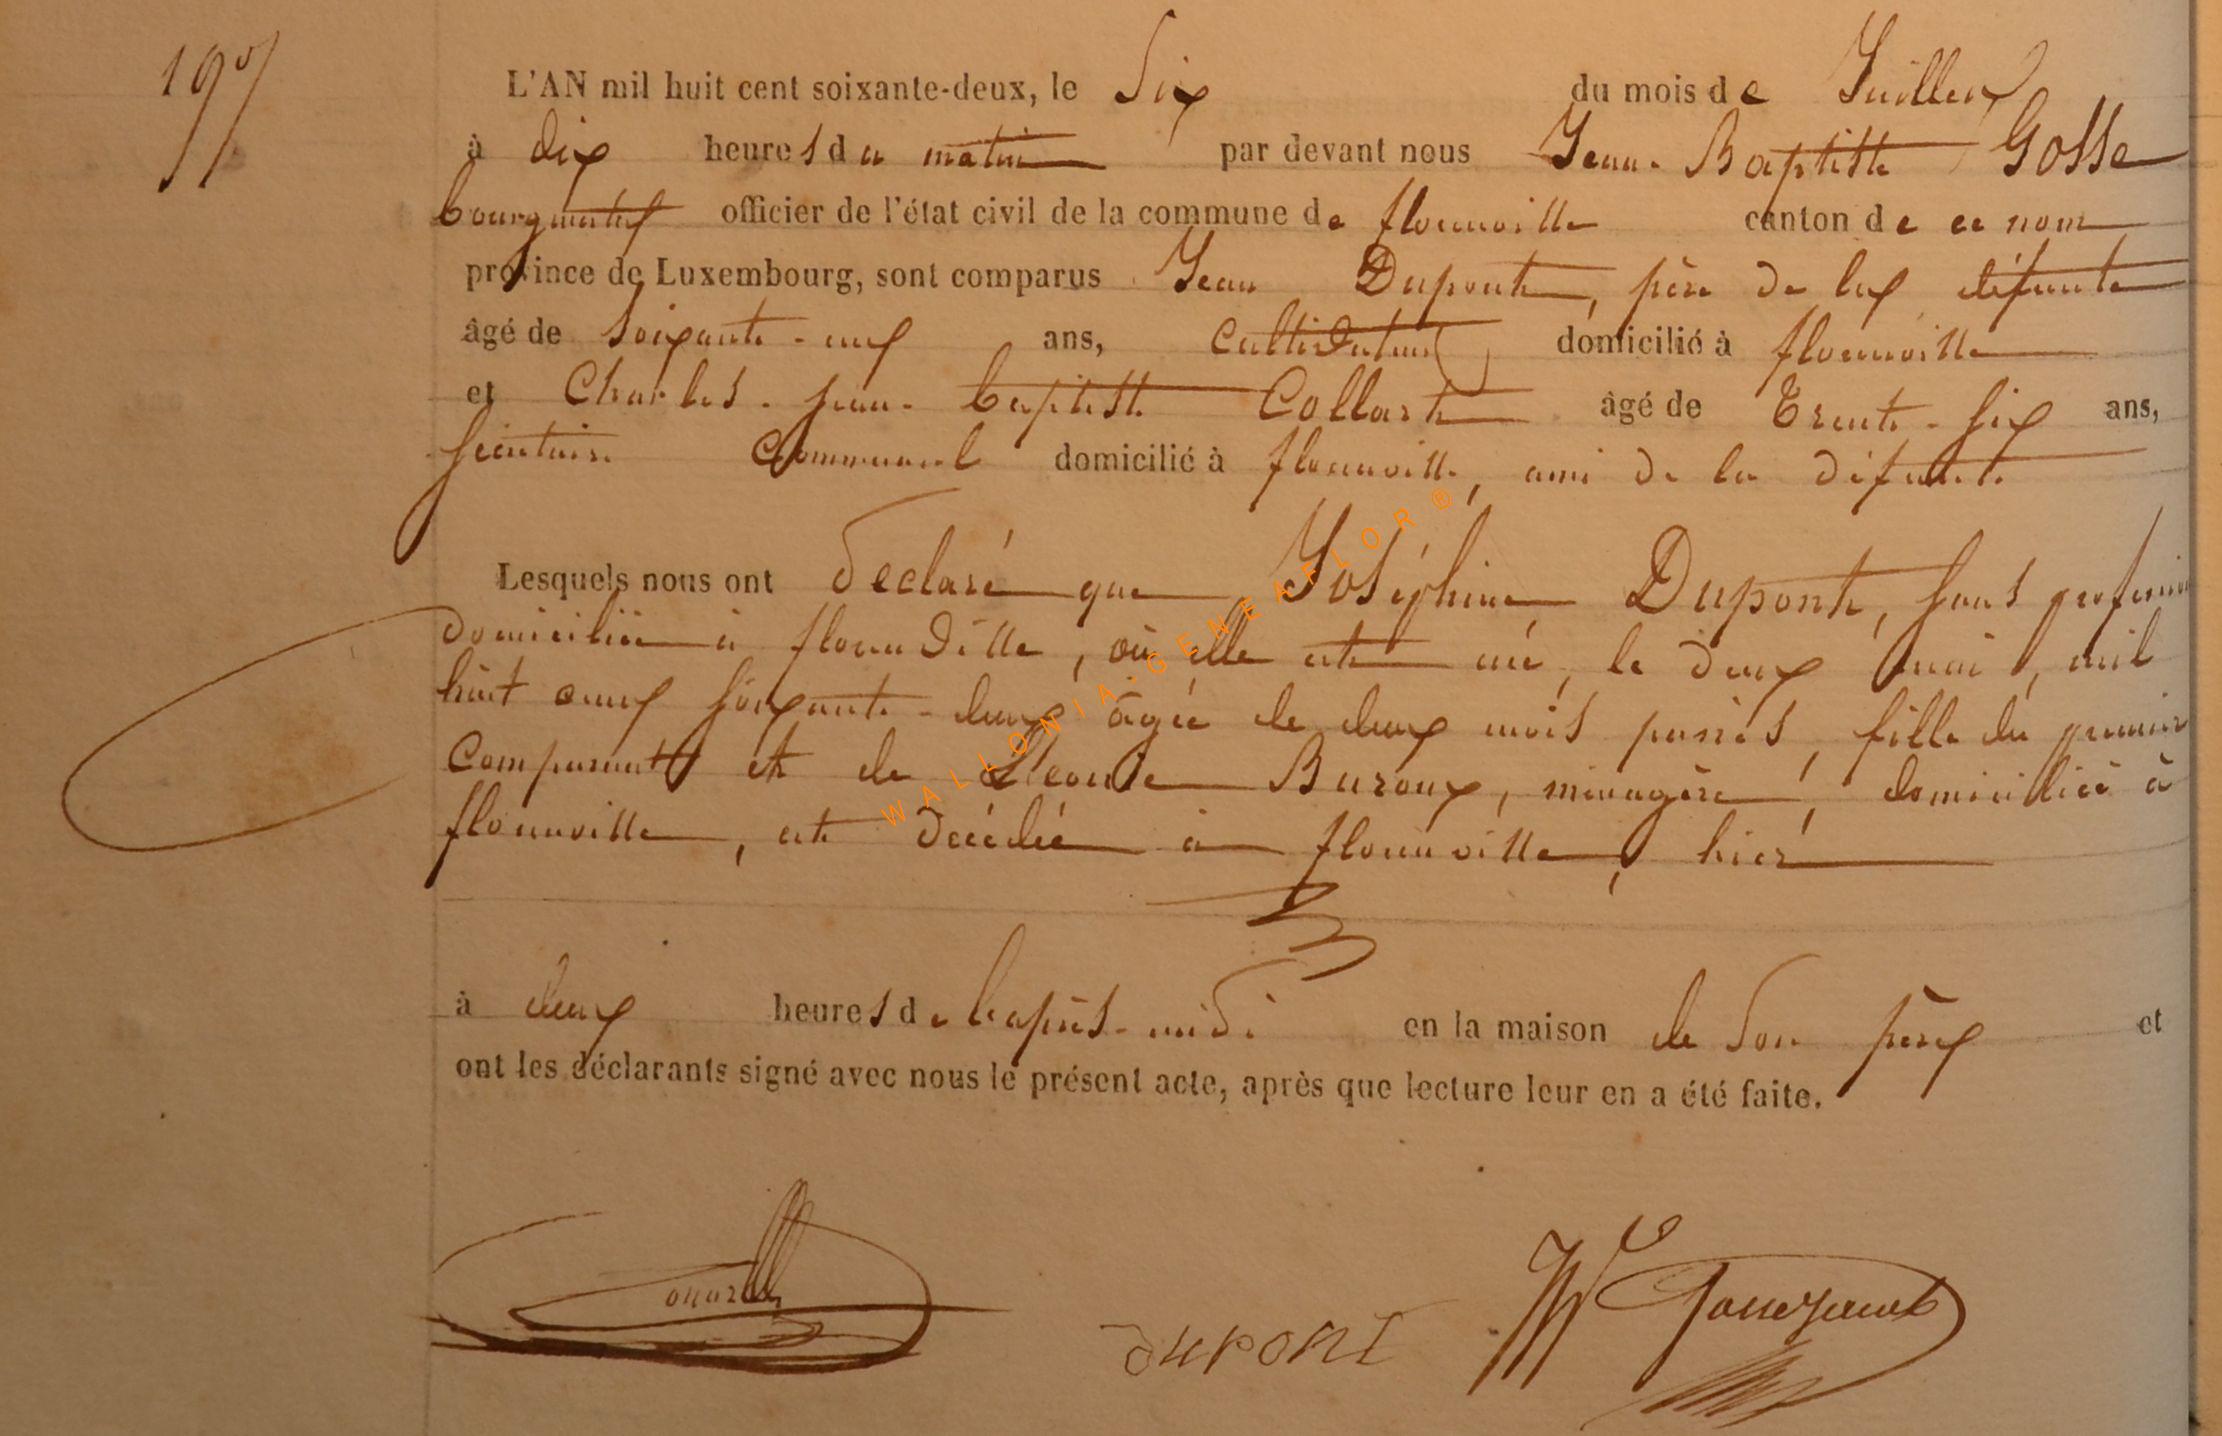 19
L'AN mil huit cent soixante-deux, le Six du mois de Juillet
à dix heures du matin par devant nous Jean-Baptiste Gosse
bourgmestre officier de l'état civil de la commune de florenville canton de ce nom
province de Luxembourg, sont comparus Jean Dupont, père de la défunte
âgé de Soixante-neuf ans, Cultivateur domicilié à florenville
et Charles-Jean-baptiste Collart âgé de Trente-six ans,
secrétaire Communal domicilié à florenville, ami de la défunte
Lesquels nous ont déclaré que Joséphine Dupont, sans profession
domiciliée à florenville, où elle est née, le deux mai, mil
huit cent soixante-deux âgée de deux mois passés, fille du premier
Comparant et de Buroux, ménagère, domiciliée à
florenville, est décédée à florenville, hier
à deux heures de l'après-midi en la maison de son père et
ont les déclarants signé avec nous le présent acte, après que lecture leur en a été faite.
DUPONT
WALLONIA-GENEAFLOR®